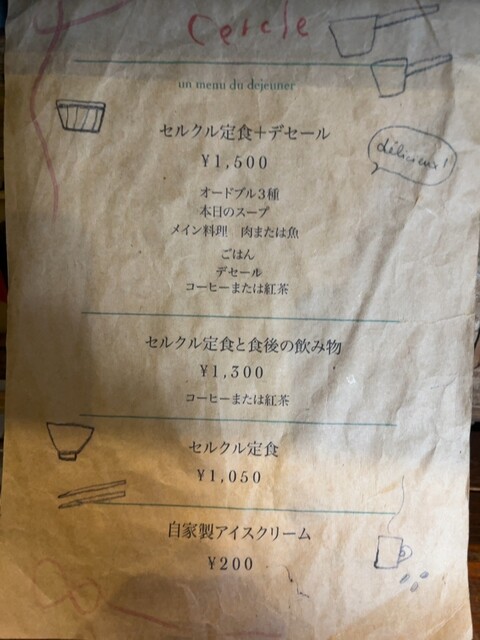 Cercle
un menu du dejeuner
セルクル定食＋デセール
¥1,500
délicieux!
オードブル3種
本日のスープ
メイン料理　肉または魚
ごはん
デセール
コーヒーまたは紅茶
セルクル定食と食後の飲み物
¥1,300
コーヒーまたは紅茶
セルクル定食
¥1,050
自家製アイスクリーム
¥200